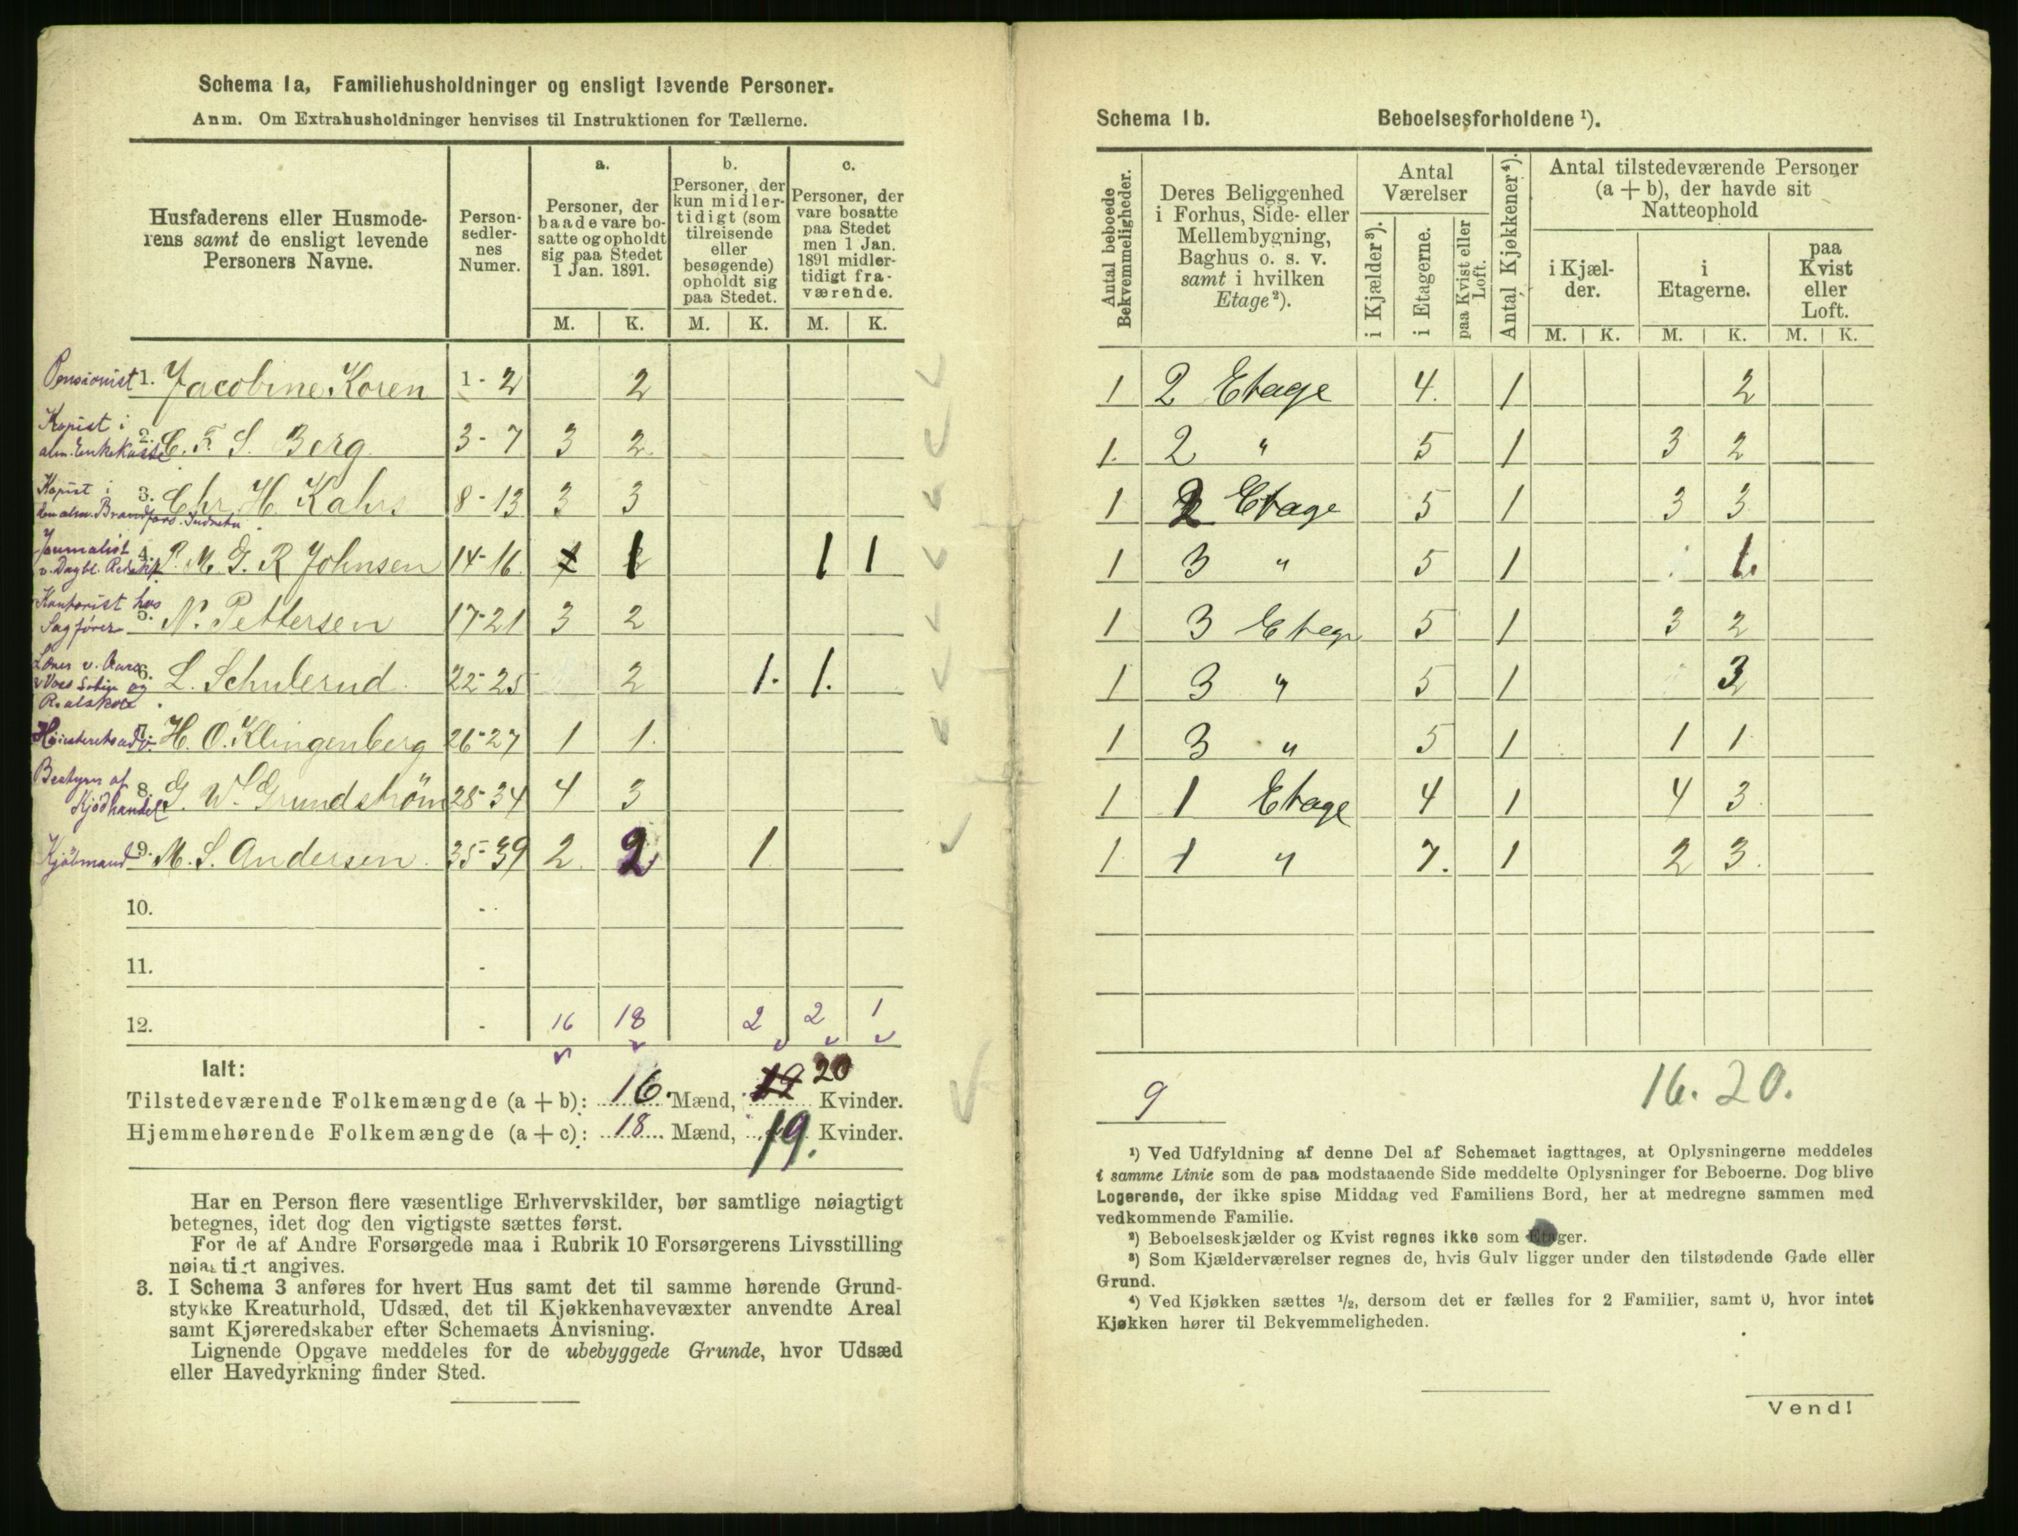 Schema 1a, Familiehusholdninger og ensligt levende Personer.
Anm. Om Extrahusholdninger henvises til Instruktionen for Tællerne.
Husfaderens eller Husmode-
rens samt de ensligt levende
Personers Navne.
Person-
sedler-
nes
Numer.
a.
Personer, der
baade vare bo-
satte og opholdt
sig paa Stedet
1 Jan. 1891.
b.
Personer, der
kun midler-
tidigt (som
tilreisende
eller
besøgende)
opholdt sig
paa Stedet.
c.
Personer, der
vare bosatte
paa Stedet
men 1 Jan.
1891 midler-
tidigt fra-
værende.
M. K. M. K. M. K.
Pensionist 1. Jacobine Koren 1-2 2
Kopist i
alm. Enkekasse 2. C. F. S. Berg 3-7 3 2
Kopist i 3. Chr H Kahrs 8-13 3 3
den alm. Brandfors. Indretn.
Journalist
v. Dagbl. 4. P. M. G. R Johnsen 14-16 1 1 1
Kontorist hos
Sagfører 5. N. Pettersen 17-21 3 2
6. L. Schulerud 22-25 2 1. 1.
Realskole
Høiesteretsadv. 7. H. O. Klingenberg 26-27 1 1
Bestyrer af
Kjødhandel 8. G. W. Grundstrøm 28-34 4 3
Kjøbmand 9. M. S. Andersen 35-39 2 2 1
10. -
11. -
12. - 16 18 2 2 1
Ialt:
Tilstedeværende Folkemængde (a + b): 16 Mænd, 19 20 Kvinder.
Hjemmehørende Folkemængde (a + c): 18 Mænd, 19. Kvinder.
Har en Person flere væsentlige Erhvervskilder, bør samtlige nøiagtigt
betegnes, idet dog den vigtigste sættes først.
For de af Andre Forsørgede maa i Rubrik 10 Forsørgerens Livsstilling
nøiagtigt angives.
3. I Schema 3 anføres for hvert Hus samt det til samme hørende Grund-
stykke Kreaturhold, Udsæd, det til Kjøkkenhavevæxter anvendte Areal
samt Kjøreredskaber efter Schemaets Anvisning.
Lignende Opgave meddeles for de ubebyggede Grunde, hvor Udsæd
eller Havedyrkning finder Sted.
Schema 1b. Beboelsesforholdene ¹).
Antal beboede
Bekvemmeligheder.
Deres Beliggenhed
i Forhus, Side- eller
Mellembygning,
Baghus o. s. v.
samt i hvilken
Etage²).
Antal
Værelser
i Kjælder³).
i Etagerne.
paa Kvist eller
Loft.
Antal Kjøkkener⁴).
Antal tilstedeværende Personer
(a + b), der havde sit
Natteophold
i Kjæl-
der.
i
Etagerne.
paa
Kvist
eller
Loft.
M. K. M. K. M. K.
1 2 Etage 4. 1 2
1. 2 " 5 1 3 2
1 2 Etage 5 1 3 3
1 3 " 5 1 1.
1 3 Etage 5 1 3 2
1 3 " 5 1 3
1 3 " 5 1 1 1
1 1 Etage 4 1 4 3
1 1 " 7. 1 2 3
9 16. 20.
¹) Ved Udfyldning af denne Del af Schemaet iagttages, at Oplysningerne meddeles
i samme Linie som de paa modstaaende Side meddelte Oplysninger for Beboerne. Dog blive
Logerende, der ikke spise Middag ved Familiens Bord, her at medregne sammen med
vedkommende Familie.
²) Beboelseskjælder og Kvist regnes ikke som Etager.
³) Som Kjælderværelser regnes de, hvis Gulv ligger under den tilstødende Gade eller
Grund.
⁴) Ved Kjøkken sættes ½, dersom det er fælles for 2 Familier, samt 0, hvor intet
Kjøkken hører til Bekvemmeligheden.
Vend!